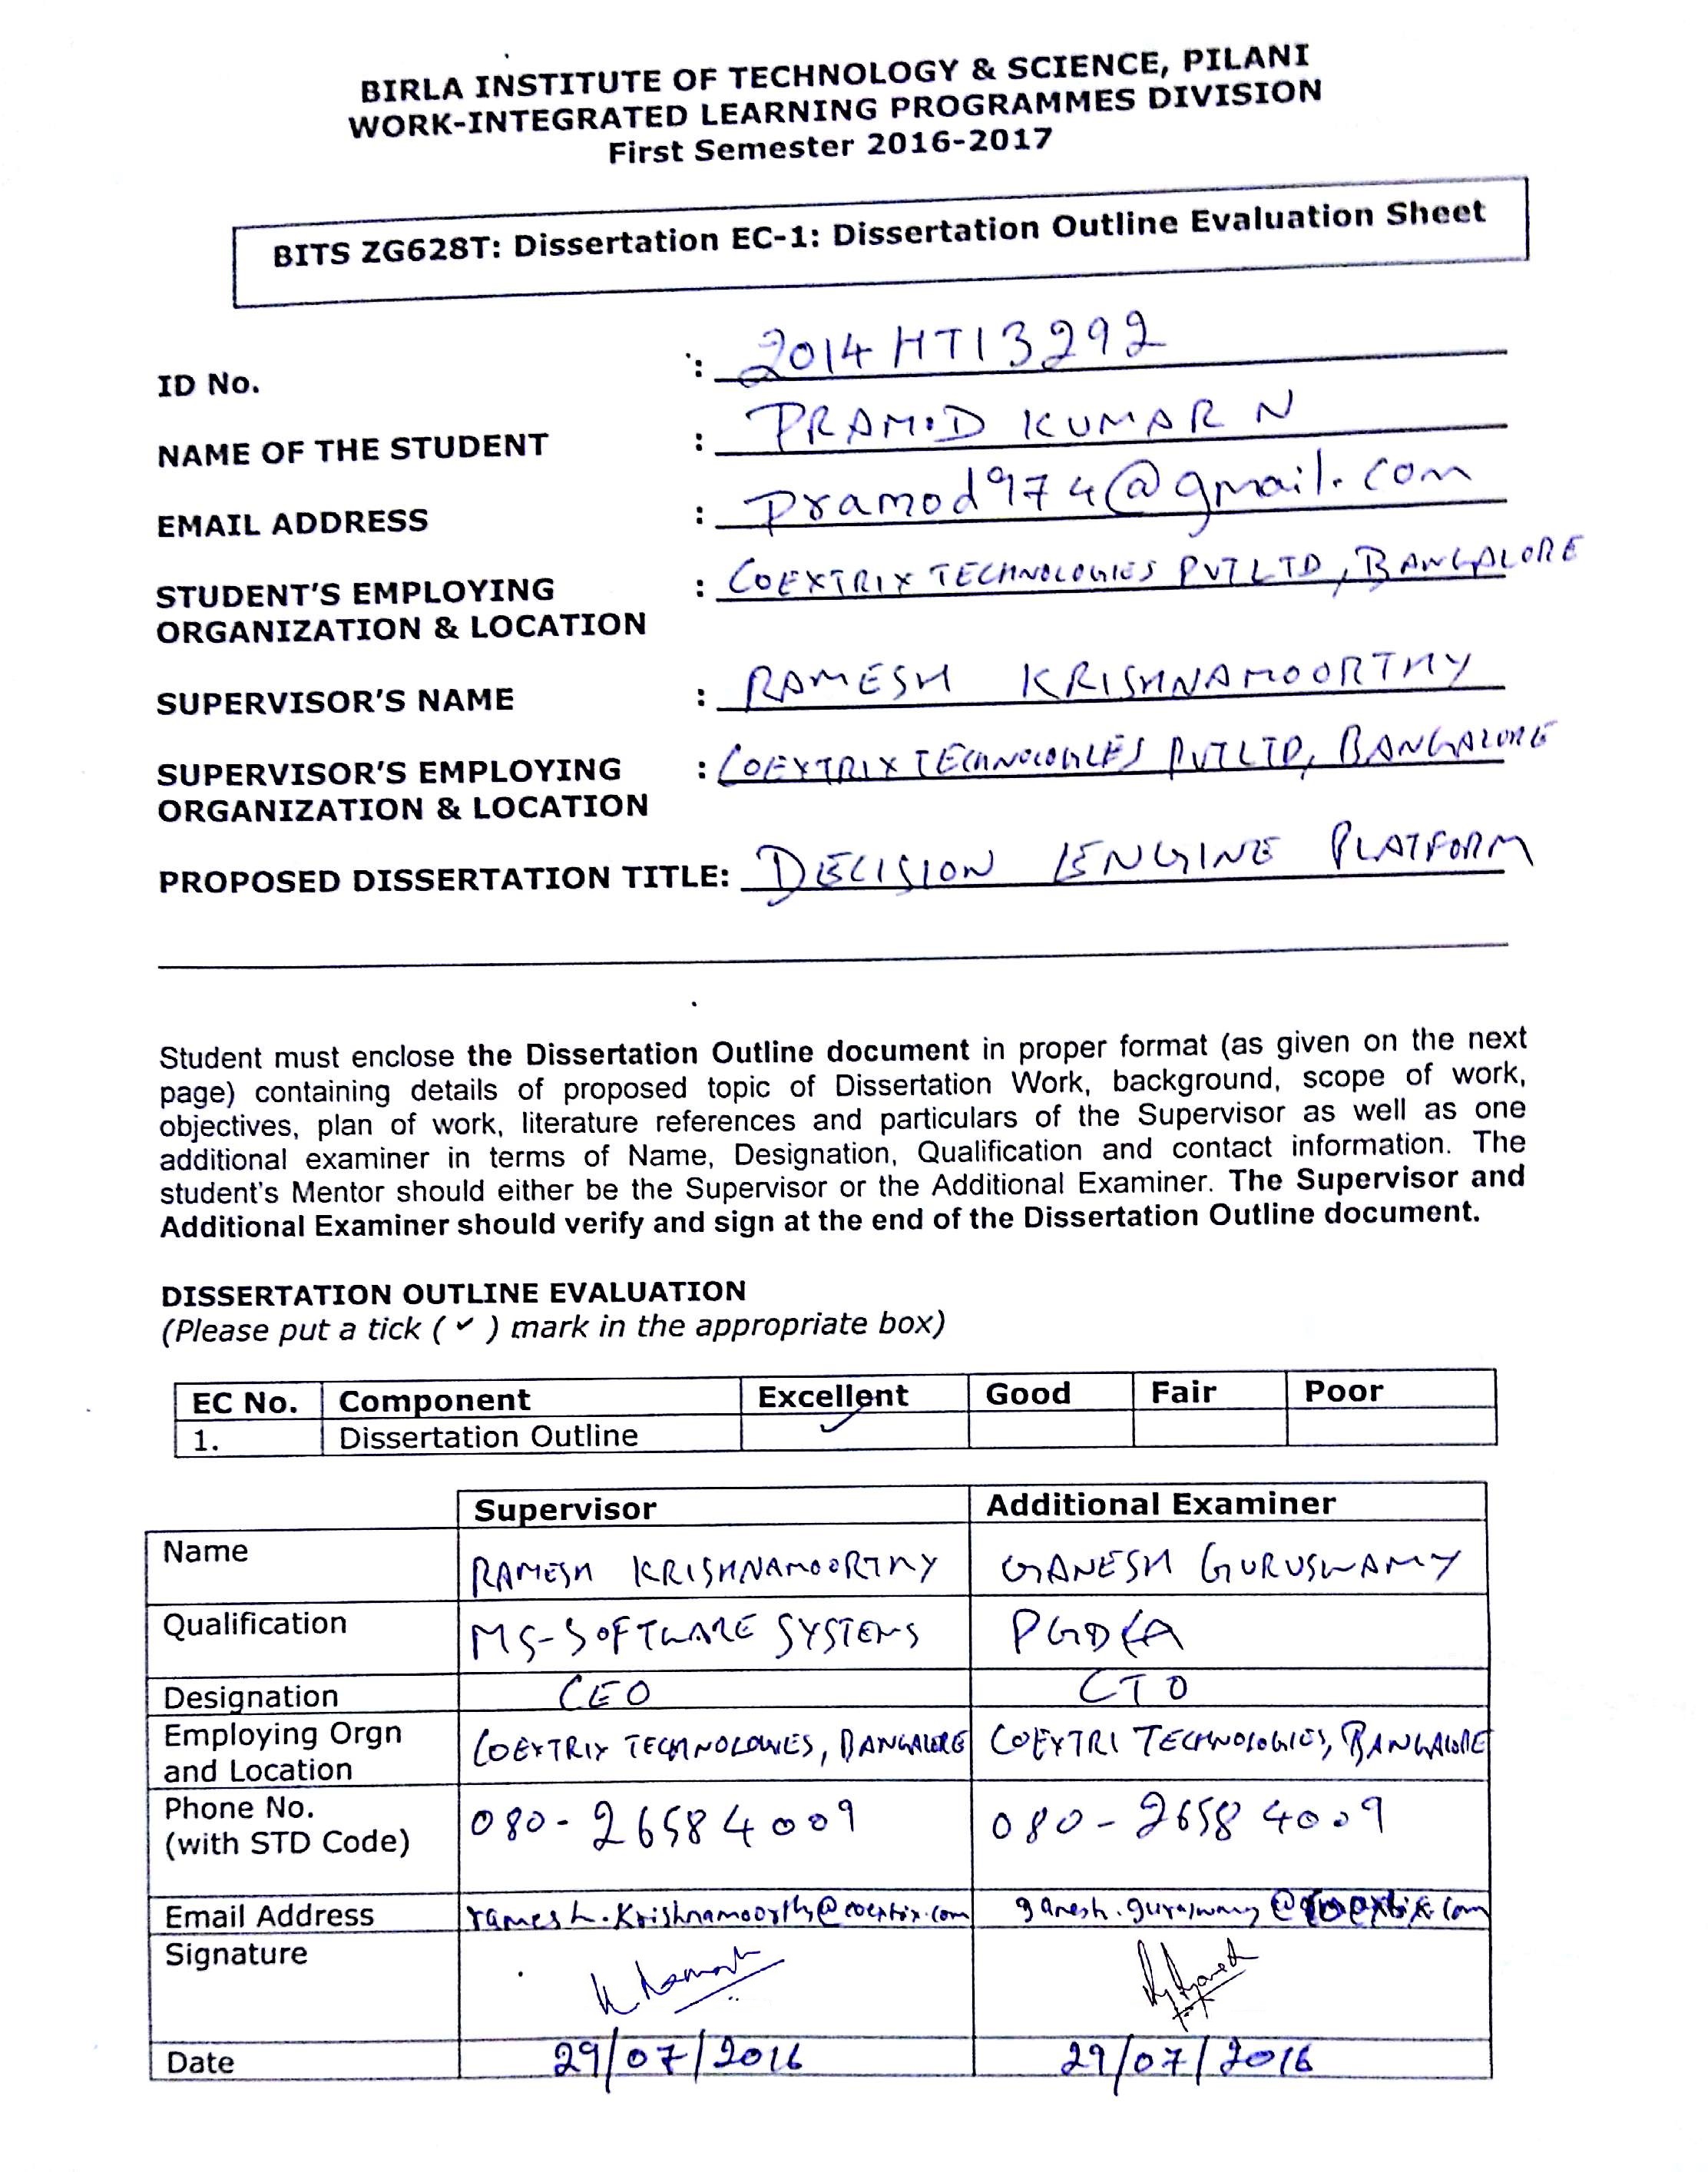 BIRLA INSTITUTE OF TECHNOLOGY & SCIENCE, PILANI
WORK-INTEGRATED LEARNING PROGRAMMES DIVISION
First Semester 2016-2017
BITS ZG628T: Dissertation EC-1: Dissertation Outline Evaluation Sheet
ID No. : 2014HT13292
NAME OF THE STUDENT : PRAMOD KUMAR N
EMAIL ADDRESS : Pramod974@gmail.com
STUDENT'S EMPLOYING : COEXTRIX TECHNOLOGIES PVT LTD, BANGALORE
ORGANIZATION & LOCATION
SUPERVISOR'S NAME : RAMESH KRISHNAMOORTHY
SUPERVISOR'S EMPLOYING : COEXTRIX TECHNOLOGIES PVT LTD, BANGALORE
ORGANIZATION & LOCATION
PROPOSED DISSERTATION TITLE: DECISION ENGINE PLATFORM
Student must enclose the Dissertation Outline document in proper format (as given on the next
page) containing details of proposed topic of Dissertation Work, background, scope of work,
objectives, plan of work, literature references and particulars of the Supervisor as well as one
additional examiner in terms of Name, Designation, Qualification and contact information. The
student's Mentor should either be the Supervisor or the Additional Examiner. The Supervisor and
Additional Examiner should verify and sign at the end of the Dissertation Outline document.
DISSERTATION OUTLINE EVALUATION
(Please put a tick ( ✓ ) mark in the appropriate box)
EC No. Component Excellent Good Fair Poor
1. Dissertation Outline ✓
Supervisor Additional Examiner
Name RAMESH KRISHNAMOORTHY GANESH GURUSWAMY
Qualification MS-SOFTWARE SYSTEMS PGDCA
Designation CEO CTO
Employing Orgn
and Location COEXTRIX TECHNOLOGIES, BANGALORE COEXTRI TECHNOLOGIES, BANGALORE
Phone No.
(with STD Code) 080-26584009 080-26584009
Email Address ramesh.Krishnamoorthy@coextrix.com ganesh.guruswamy@coextrix.com
Signature
Date 29/07/2016 29/07/2016